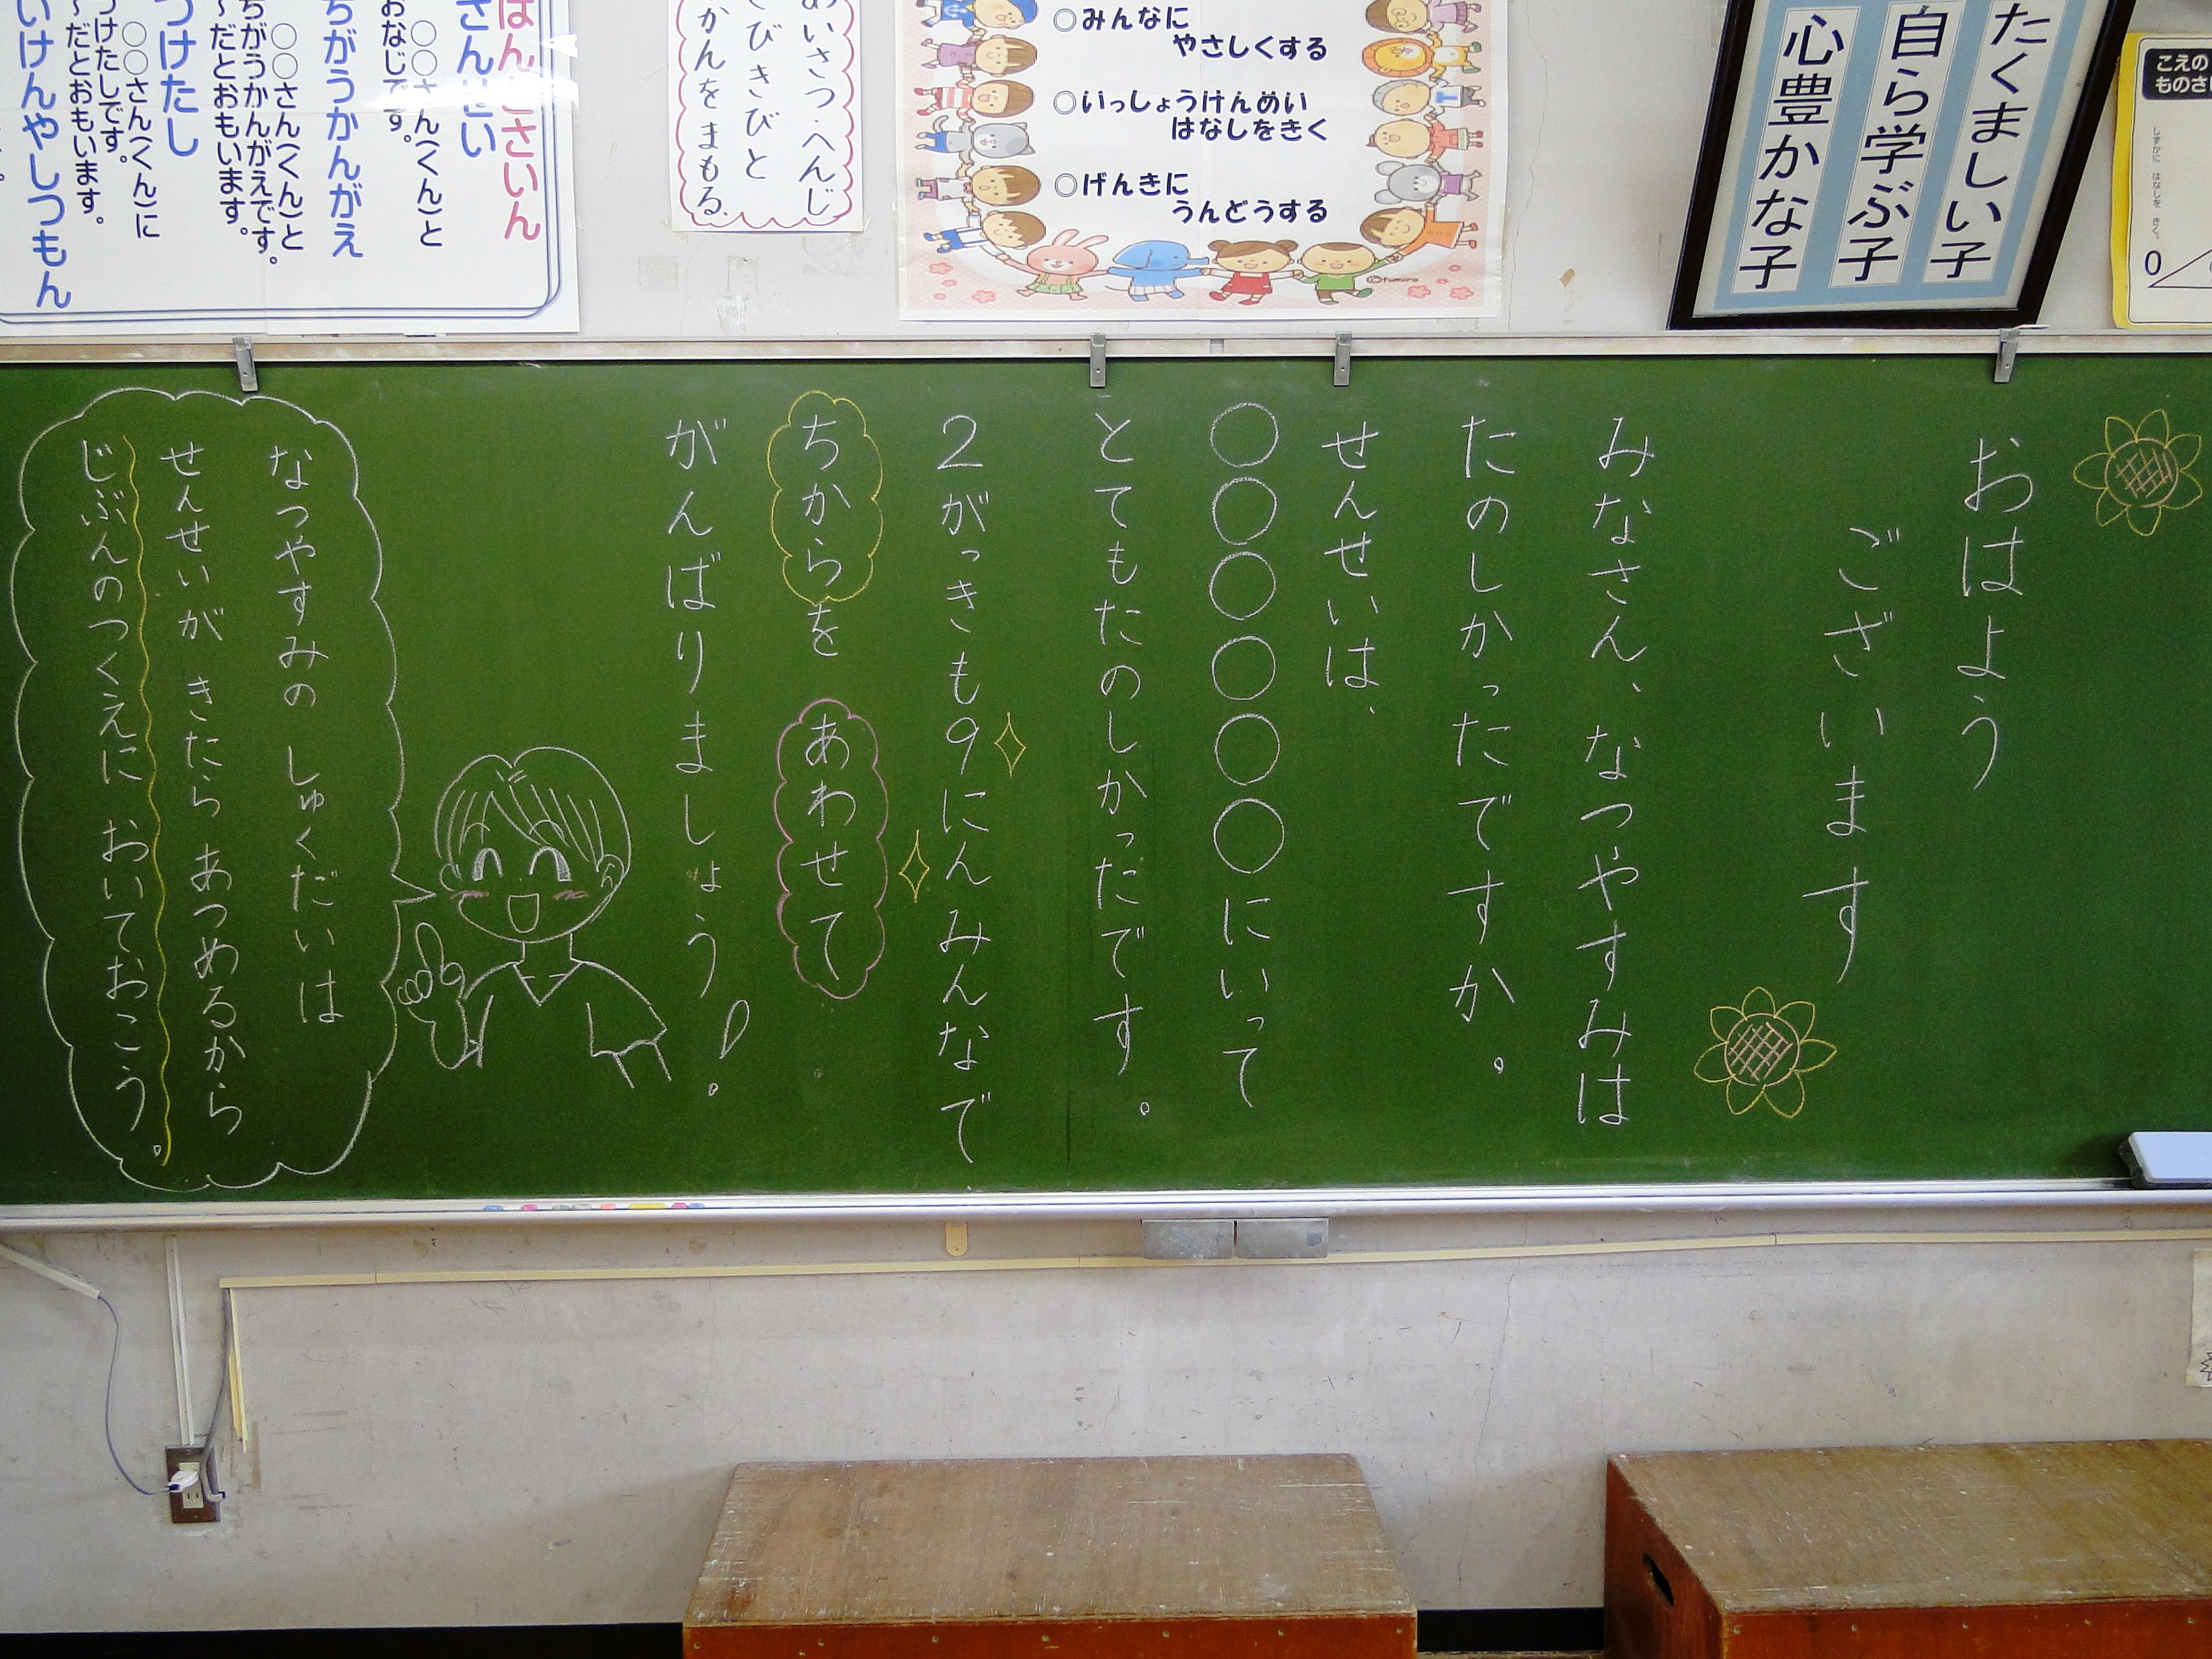 はんごさいん
さんせい
○○さん(くん)と
おなじです。
ちがうかんがえ
○○さん(くん)と
ちがうかんがえです。
~だとおもいます。
つけたし
○○さん(くん)に
つけたしです。
~だとおもいます。
いけんやしつもん
あいさつ・へんじ
きびきびと
かんをまもる。
○みんなに
やさしくする
○いっしょうけんめい
はなしをきく
○げんきに
うんどうする
たくましい子
自ら学ぶ子
心豊かな子
こえの
ものさし
しずかに はなしを きく。
0
おはよう
ございます
みなさん、なつやすみは
たのしかったですか。
せんせいは、
○○○○○○にいって
とてもたのしかったです。
2がっきも9にんみんなで
ちからを あわせて
がんばりましょう!。
なつやすみの しゅくだいは
せんせいが きたら あつめるから
じぶんのつくえに おいておこう。